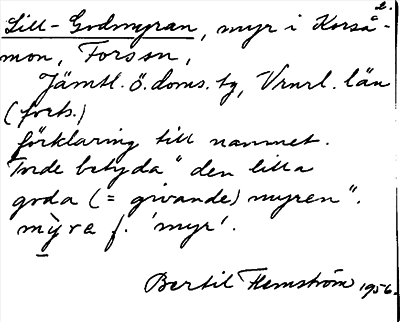 2.
Lill-Godmyran, myr i Korså-
mon, Forssn,
Jämtl. ö. doms. tg, Vrnrl. län
(forts.)
förklaring till namnet.
Torde betyda "den lilla
goda (= givande) myren".
mỳra f. 'myr'.
Bertil Flemström 1956.